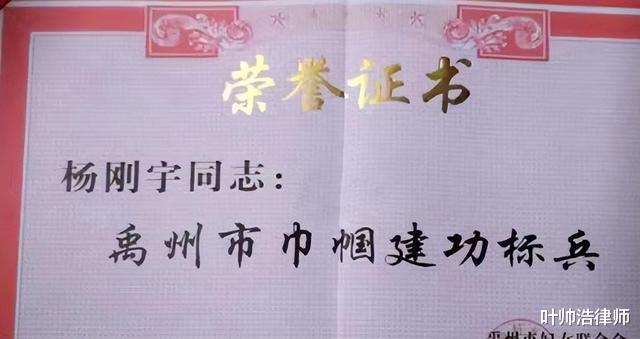 荣誉证书
杨刚宇同志：
禹州市巾帼建功标兵
禹州市妇女联合会
叶帅浩律师